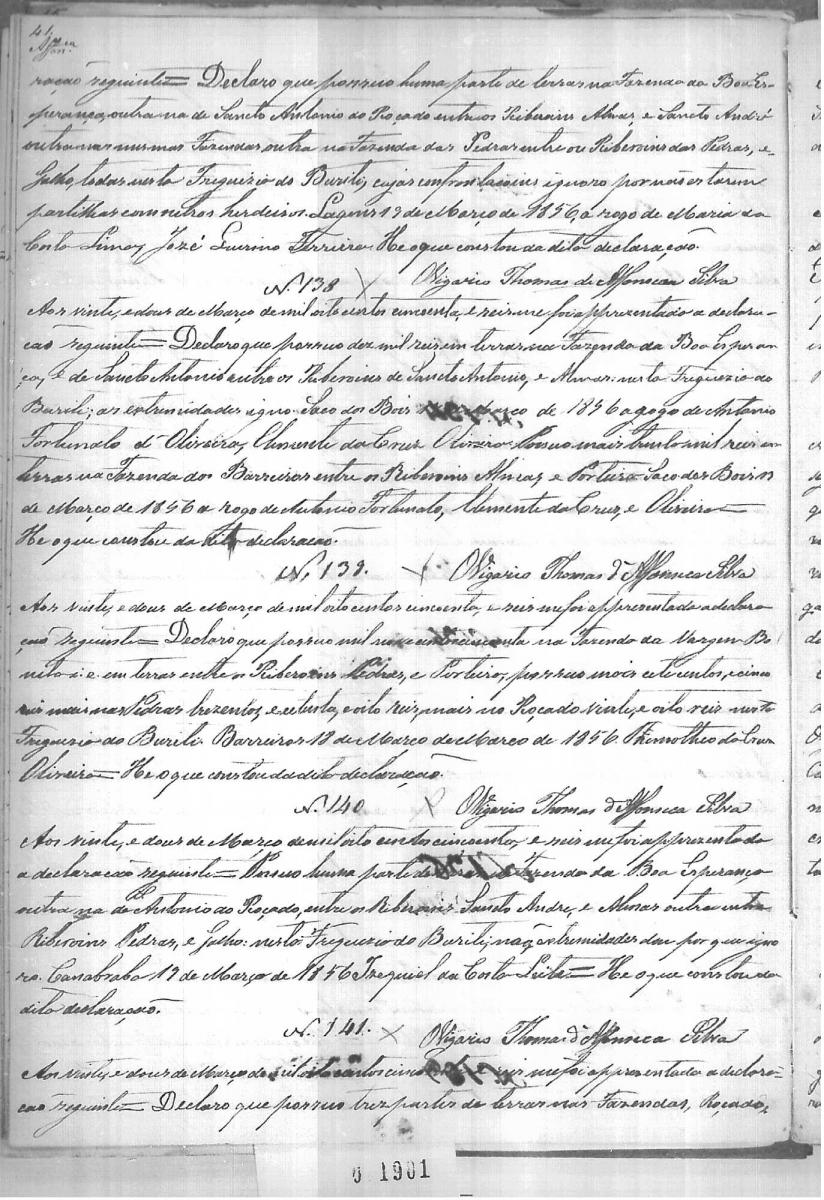 41.
ração seguinte = Declaro que possuo huma parte de terras na Fazenda da Boa Es-
perança, outra na de Sancto Antonio do Roçado entre os Ribeiroins Almas, e Sancto André
outra nas mesmas Fazendas, outra na Fazenda das Pedras entre os Ribeiroins das Pedras, e
Galho, todas nesta Freguezia do Buriti, cujas confrontacoens ignoro por não estarem
partilhas com outros herdeiros. Lagens 19 de Março de 1856 a rogo de Maria da
Costa Lima, Jozé Ferreira. He o que constou da dita declaração.
N. 138 X O Vigario Thomas de Affonseca Silva
Aos vinte, e dous de Março de mil oito centos cincoenta, e seis me foi appresentado a declara-
cão seguinte = Declaro que possuo dez mil reis em terras na Fazenda da Boa Esperan-
ça, e de Sancto Antonio entre os Ribeiroins de Sancto Antonio, e Almas: nesta Freguezia do
Buriti; as extremidades ignoro. Saco dos Bois de Março de 1856 a rogo de Antonio
Fortunato d' Oliveira, Clemente da Cruz Oliveira. Possuo mais trinta mil reis em
terras na Fazenda dos Barreiros entre os Ribeiroins Almas, e Porteira Saco dos Bois 18
de Março de 1856 a rogo de Antonio Fortunato, Clemente da Cruz, e Oliveira =
He o que constou da dita declaração.
N. 139. X O Vigario Thomas d'Affonseca Silva
Aos vinte, e dous de Março de mil oito centos cincoenta, e seis me foi appresentada a declara-
ção seguinte = Declaro que possuo mil nove centos cincoenta na Fazenda da Vargem Bo-
nita: e em terras entre os Ribeiroins Pedras, e Porteira, possuo mais cete centos, e cinco
reis mais nas Pedras trezentos, e cetenta, e oito reis, mais no Roçado vinte, e oito reis nesta
Freguezia do Buriti. Barreiros 18 de Março de Março de 1856. Thimotheo da Cruz
Oliveira = He o que constou da dita declaração.
N. 140 X O Vigario Thomas d'Affonseca Silva
Aos vinte, e dous de Março de mil oito centos cincoenta, e seis me foi apprezentada
a declaracão seguinte = Possuo huma parte de Fazenda da Boa Esperança
outra na de Antonio do Roçado, entre os Ribeiroins Sancto Andre, e Almas outra entre
Ribeiroins Pedras, e Galho: nesta Freguezia do Buriti; não extremidades dou por que igno
ro. Canabraba 19 de Março de 1856 Izequiel da Costa Leite = He o que constou da
dita declaração.
N. 141. X O Vigario Thomas d'Affonseca Silva
Aos vinte, e dous de Março de mil oito centos cinco seis me foi appresentada a declara-
cão seguinte = Declaro que possuo trez partes de terras nas Fazendas, Roçado,
0 1901